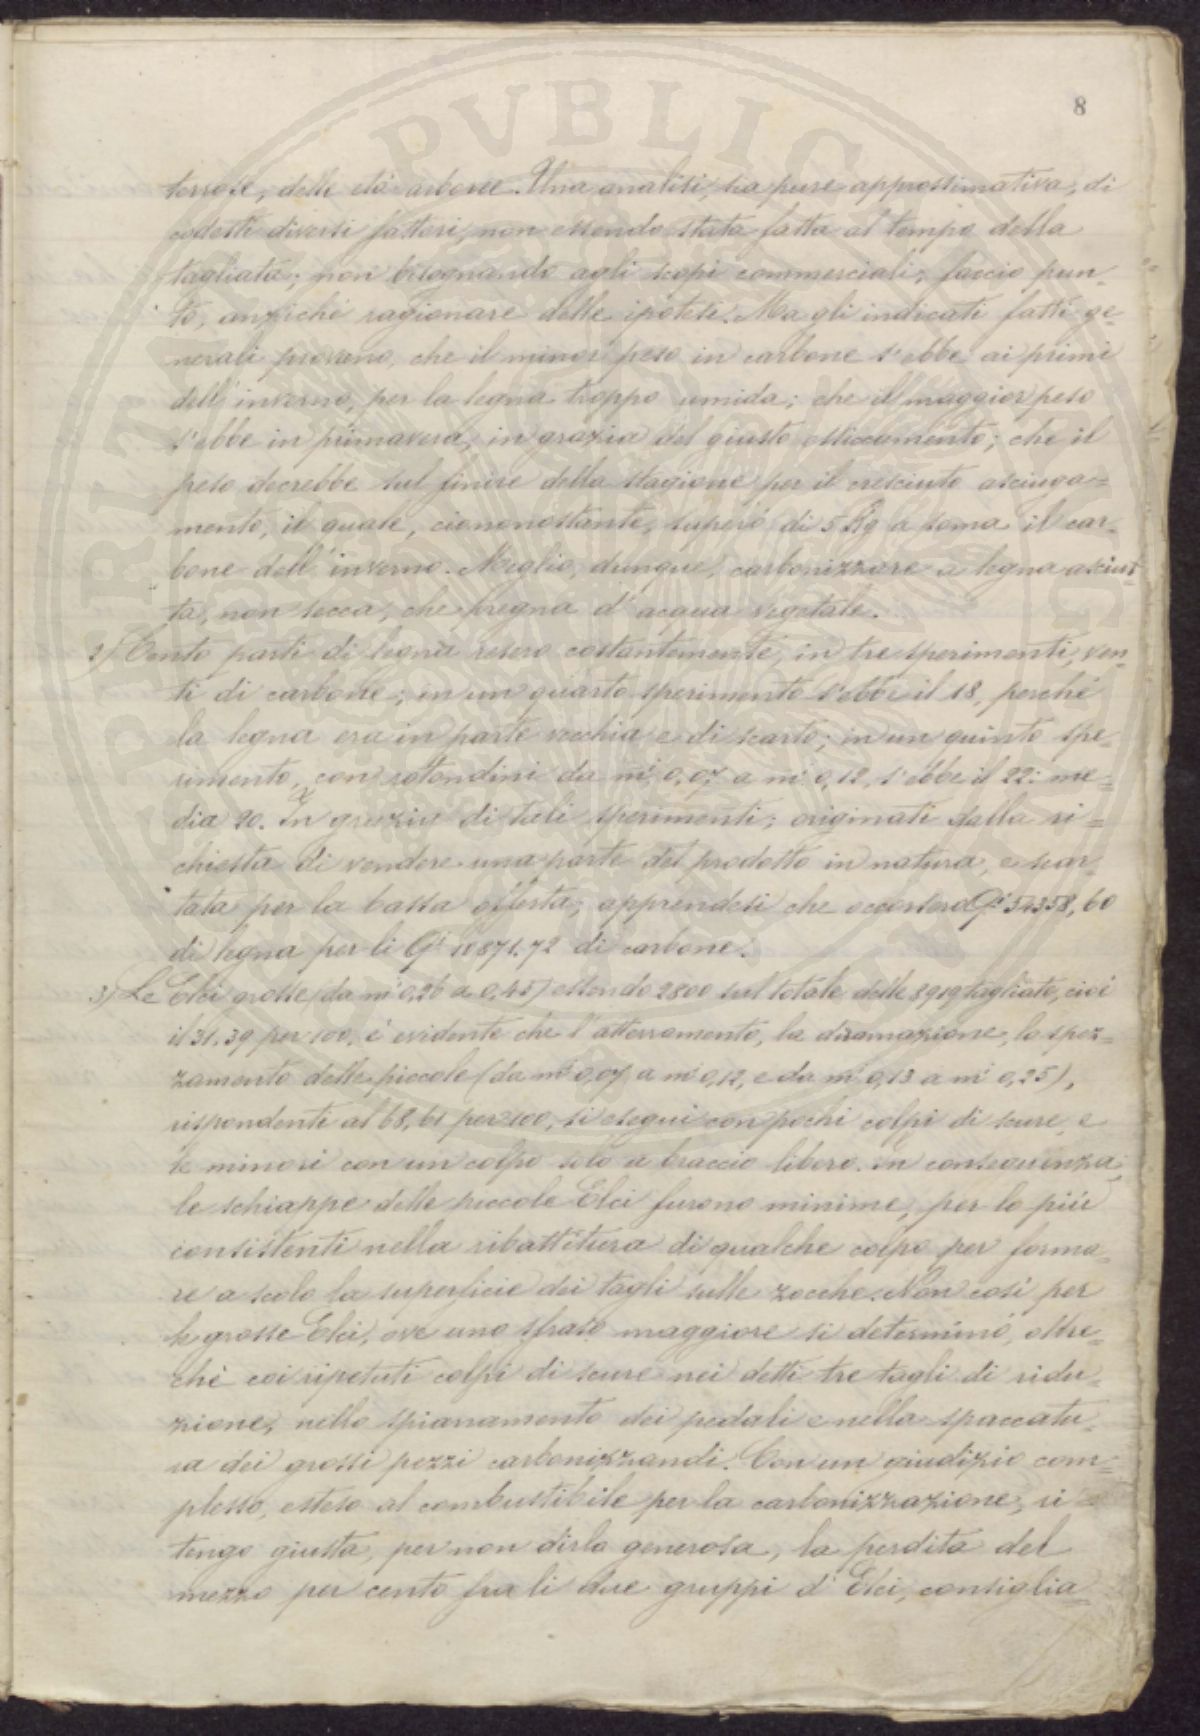 8
terrose, delle età arboree. Una analisi, sia pure approssimativa, di
codesti diversi fattori, non essendo stata fatta al tempo della
tagliata; non bisognando agli scopi commerciali; faccio pun-
to, anziché ragionare delle ipotesi. Ma gli indicati fatti ge-
nerali provano, che il minor peso in carbone s'ebbe ai primi
dell'inverno, per la legna troppo umida; che il maggior peso
s'ebbe in primavera, in grazia del giusto essiccamento; che il
peso decrebbe sul finire della stagione per il cresciuto asciuga=
mento, il quale, ciononostante, superò di 5 Kg a soma il car-
bone dell'inverno. Meglio, dunque, carbonizzare a legna asciut-
ta, non secca, che pregna d'acqua vegetale.
2) Cento parti di legna resero costantemente, in tre sperimenti, ven-
ti di carbone; in un quarto sperimento s'ebbe il 18, perché
la legna era in parte vecchia e di scarto; in un quinto spe-
rimento, con rotondini da m. 0,07 a m. 0,12, s'ebbe il 22: me-
dia 20. In grazia di tali sperimenti; originati dalla ri=
chiesta di vendere una parte del prodotto in natura, e scar-
tata per la bassa offerta; apprendesi che occorsero Qi 54358,60
di legna per li Qi 10871.72 di carbone.
3) Le Elci grosse (da m. 0,26 a 0,45) essendo 2800 sul totale delle 8919 tagliate, cioè
il 31.39 per 100, è evidente che l'atterramento, la diramazione, lo spez=
zamento delle piccole (da m. 0,07 a m. 0,12, e da m. 0,13 a m. 0,25),
rispondenti al 68,61 per 100, si eseguì con pochi colpi di scure, e
le minori con un colpo solo a braccio libero. In conseguenza,
le schiappe delle piccole Elci furono minime, per lo più
consistenti nella ribattitura di qualche colpo per forma-
re a scolo la superficie dei tagli sulle zocche. Non così per
le grosse Elci, ove uno sfraso maggiore si determinò, oltre-
chè coi ripetuti colpi di scure nei detti tre tagli di ridu-
zione, nello spianamento dei pedali e nella spaccatu-
ra dei grossi pezzi carbonizzandi. Con un giudizio com-
plesso, esteso al combustibile per la carbonizzazione, ri=
tengo giusta, per non dirla generosa, la perdita del
mezzo per cento fra li due gruppi d'Elci, consiglia-